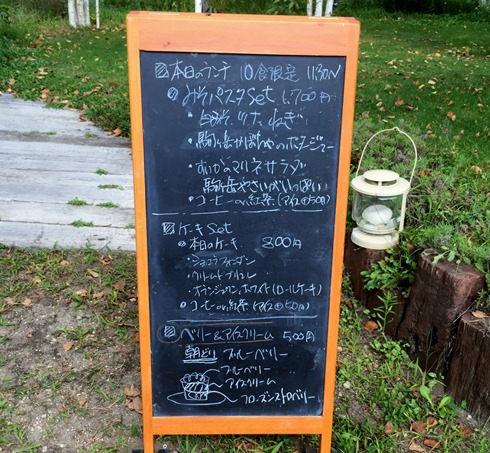 本日のランチ 10食限定 1130〜
みそパスタSet 1,700円
・自家製ツナ、ねぎ
・駒ヶ岳かぼちゃのポタージュ
・すいかマリネサラダ
駒ヶ岳やさいがいっぱい
・コーヒーor紅茶(アイス+50円)
ケーキSet
・本日のケーキ 800円
・ショコラフォンダン
・クリームドブリュレ
・ホワイト(ロールケーキ)
・コーヒーor紅茶(アイス+50円)
ベリー&アイスクリーム 500円
朝どり ブルーベリー
ブルーベリー
アイスクリーム
フローズンストロベリー